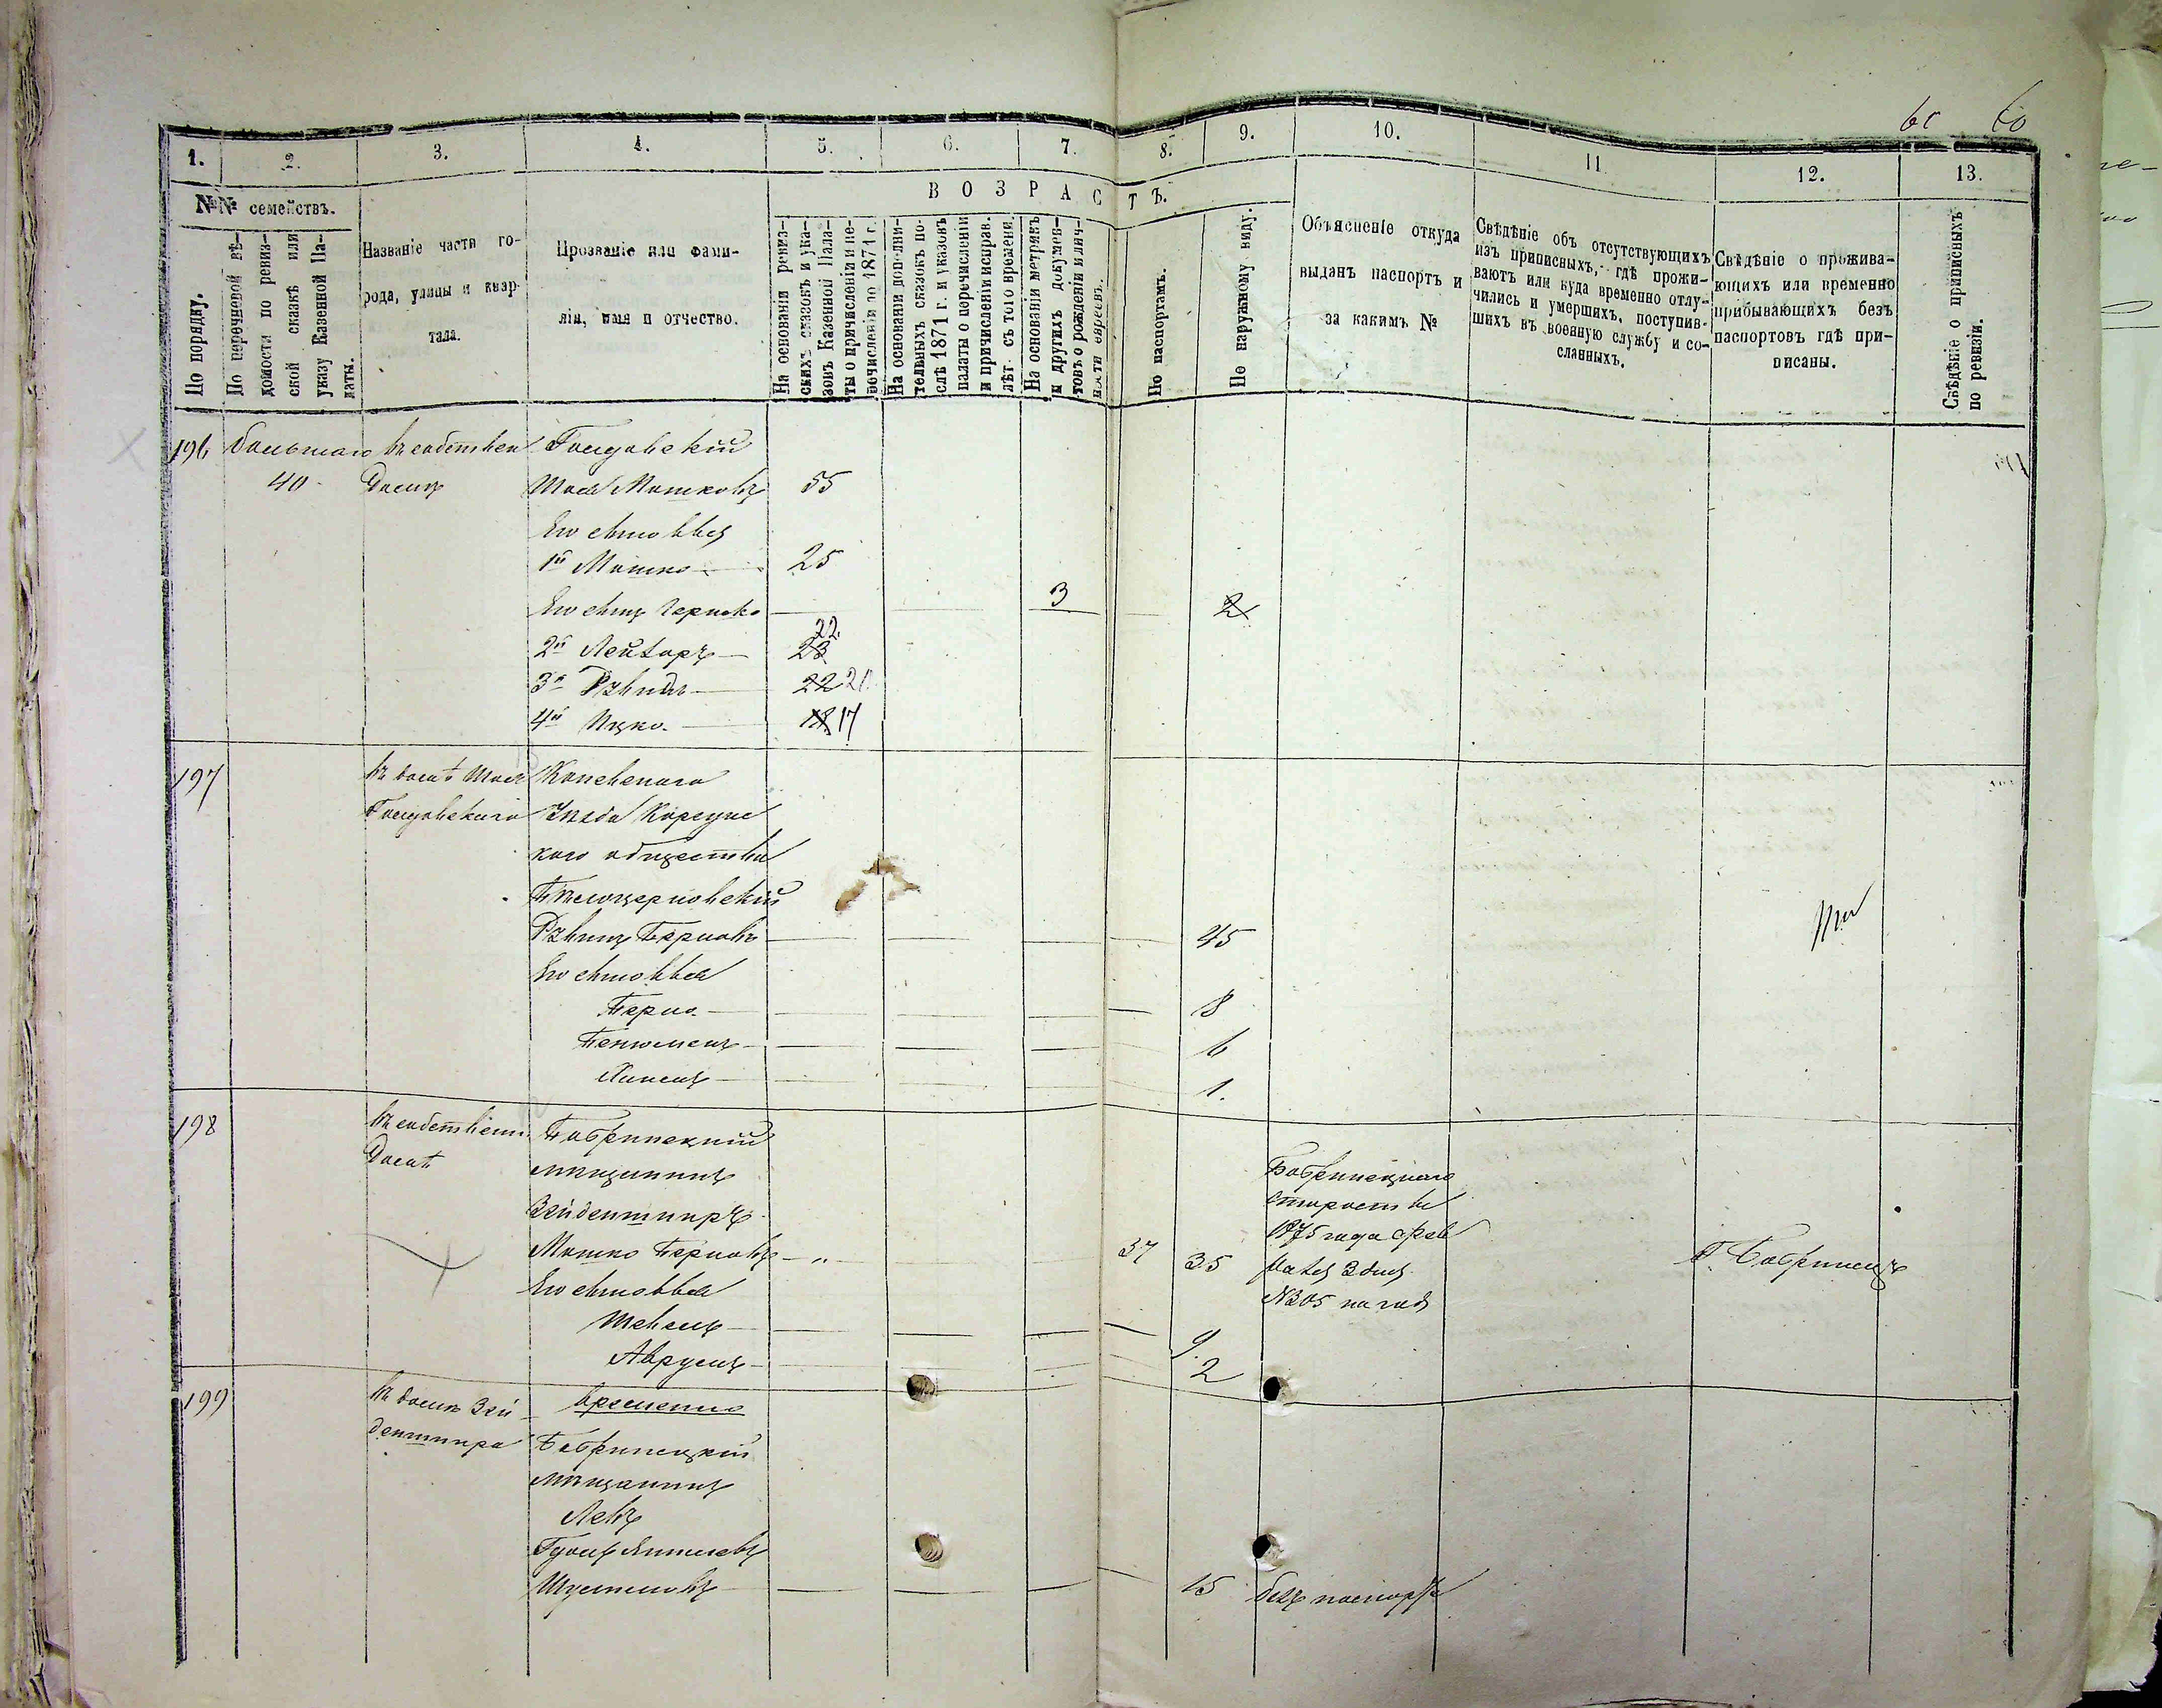 60 60
1. 2. 3. 4. 5. 6. 7. 8. 9. 10. 11 12. 13.
№№ семействъ.
ВОЗРАСТЪ.
По порядку.
По перечневой вѣ-
домости по ревиз-
ской сказкѣ или
указу Казенной Па-
латы.
Названіе части го-
рода, улицы и квар-
тала.
Прозваніе или фами-
лія, имя и отчество.
На основаніи ревиз-
скихъ сказокъ и ука-
зовъ Казенной Пала-
ты о причисленіи и пе-
речисленіи до 1871 г.
На основаніи дополни-
тельныхъ сказокъ по-
слѣ 1871 г. и указовъ
палаты о перечисленіи
и причисленіи исправ.
лѣт. съ того времени.
На основаніи метрикъ
и другихъ докумен-
товъ о рожденіи и лич-
ности евреевъ.
По паспортамъ.
По наружному виду.
Объясненіе откуда
выданъ паспортъ и
за какимъ №
Свѣдѣніе объ отсутствующихъ
изъ приписныхъ, гдѣ прожи-
ваютъ или куда временно отлу-
чились и умершихъ, поступив-
шихъ въ военную службу и со-
сланныхъ.
Свѣдѣніе о прожива-
ющихъ или временно
прибывающихъ безъ
паспортовъ гдѣ при-
писаны.
Свѣдѣніе о приписныхъ
по ревизіи.
196
40
Домѣ
Мошковъ 55
Его сыновья
1й Мошко 25
Его сынъ Гершко 3 2
2й Лейзоръ 23 22.
3й 22 21.
4й Ицко. 18 17
197 въ домѣ
Каневскаго
уѣзда Корсунс
каго общества
Бѣлоцерковскій
Берковъ 45
Его сыновья
Берко 8
6
1.
198 въ собственн.
Домѣ
Бобринецкій
мѣщанинъ
Зейденшниръ
Мошко Берковъ 37 35
Бобринецкаго
старосты
1875 года
№305 на годъ
г. Бобринецъ
Его сыновья
9.
Аврумъ 2
199 въ домѣ Зей
деншнира
временно
Бобринецкій
мѣщанинъ
15 безъ паспорта